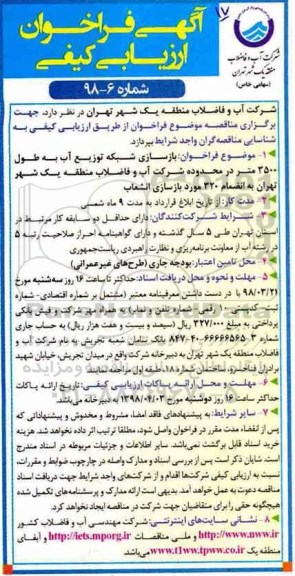 ۱۷
آگهی فراخوان
ارزیابی کیفی
شرکت آب و فاضلاب
منطقه یک شهر تهران
(سهامی خاص)
شماره ۶-۹۸
شرکت آب و فاضلاب منطقه یک شهر تهران در نظر دارد، جهت
برگزاری مناقصه موضوع فراخوان از طریق ارزیابی کیفی به
شناسایی مناقصه‌گران واجد شرایط بپردازد.
۱- موضوع فراخوان: بازسازی شبکه توزیع آب به طول
۳۵۰۰ متر در محدوده شرکت آب و فاضلاب منطقه یک شهر
تهران به انضمام ۳۲۰ مورد بازسازی انشعاب
۲- مدت کار: از تاریخ ابلاغ قرارداد به مدت ۹ ماه شمسی
۳- شرایط شرکت‌کنندگان: دارای حداقل دو سابقه کار مرتبط در
استان تهران طی ۵ سال گذشته و دارای گواهینامه احراز صلاحیت رتبه ۵
در رشته آب از معاونت برنامه‌ریزی و نظارت راهبردی ریاست‌جمهوری
۴- محل تامین اعتبار: بودجه جاری (طرح‌های غیرعمرانی)
۵- مهلت و نحوه و محل دریافت اسناد: حداکثر تا ساعت ۱۶ روز سه‌شنبه مورخ
۹۸/۰۳/۲۱ با در دست داشتن معرفینامه معتبر (مشتمل بر شماره اقتصادی- شماره
ثبت- کدپستی ده رقمی- آدرس- تلفن و نمابر) به همراه مهر شرکت و فیش بانکی
پرداختی به مبلغ ۳۲۷/۰۰۰ ریال (سیصد و بیست و هفت هزار ریال) به حساب جاری
شماره ۲-۶۶۶۶۶۵۶۵-۴۰-۸۴۷ بانک سامان شعبه تجریش به نام شرکت آب و
فاضلاب منطقه یک شهر تهران به دبیرخانه شرکت واقع در میدان تجریش، خیابان شهید
۶- مهلت و محل ارائه پاکات ارزیابی کیفی: تاریخ ارائه پاکات
حداکثر ساعت ۱۶ روز دوشنبه مورخ ۱۳۹۸/۰۴/۰۳ به دبیرخانه می‌باشد.
۷- سایر شرایط: به پیشنهادهای فاقد امضا، مشروط و مخدوش و پیشنهاداتی که
پس از انقضاء مدت مقرر در فراخوان واصل شود، مطلقا ترتیب اثر داده نخواهد شد. هزینه
خرید اسناد قابل برگشت نمی‌باشد. سایر اطلاعات و جزئیات مربوطه در اسناد مندرج
است. شایان ذکر است پس از بررسی اسناد و مدارک واصله در چارچوب ضوابط و مقررات،
نسبت به ارزیابی کیفی شرکت‌ها اقدام و از شرکت‌های واجد شرایط جهت دریافت اسناد
مناقصه دعوت به عمل خواهد آمد. بدیهی است ارائه مدارک و پرسشنامه‌های تکمیل شده
هیچگونه حقی را برای متقاضیان جهت شرکت در مناقصه ایجاد نخواهد کرد.
۸- نشانی سایت‌های اینترنتی: شرکت مهندسی آب و فاضلاب کشور
http://www.nww.ir و ملی مناقصات http://iets.mporg.ir و آبفای
منطقه یک www.t1ww.tpww.co.ir می‌باشد.